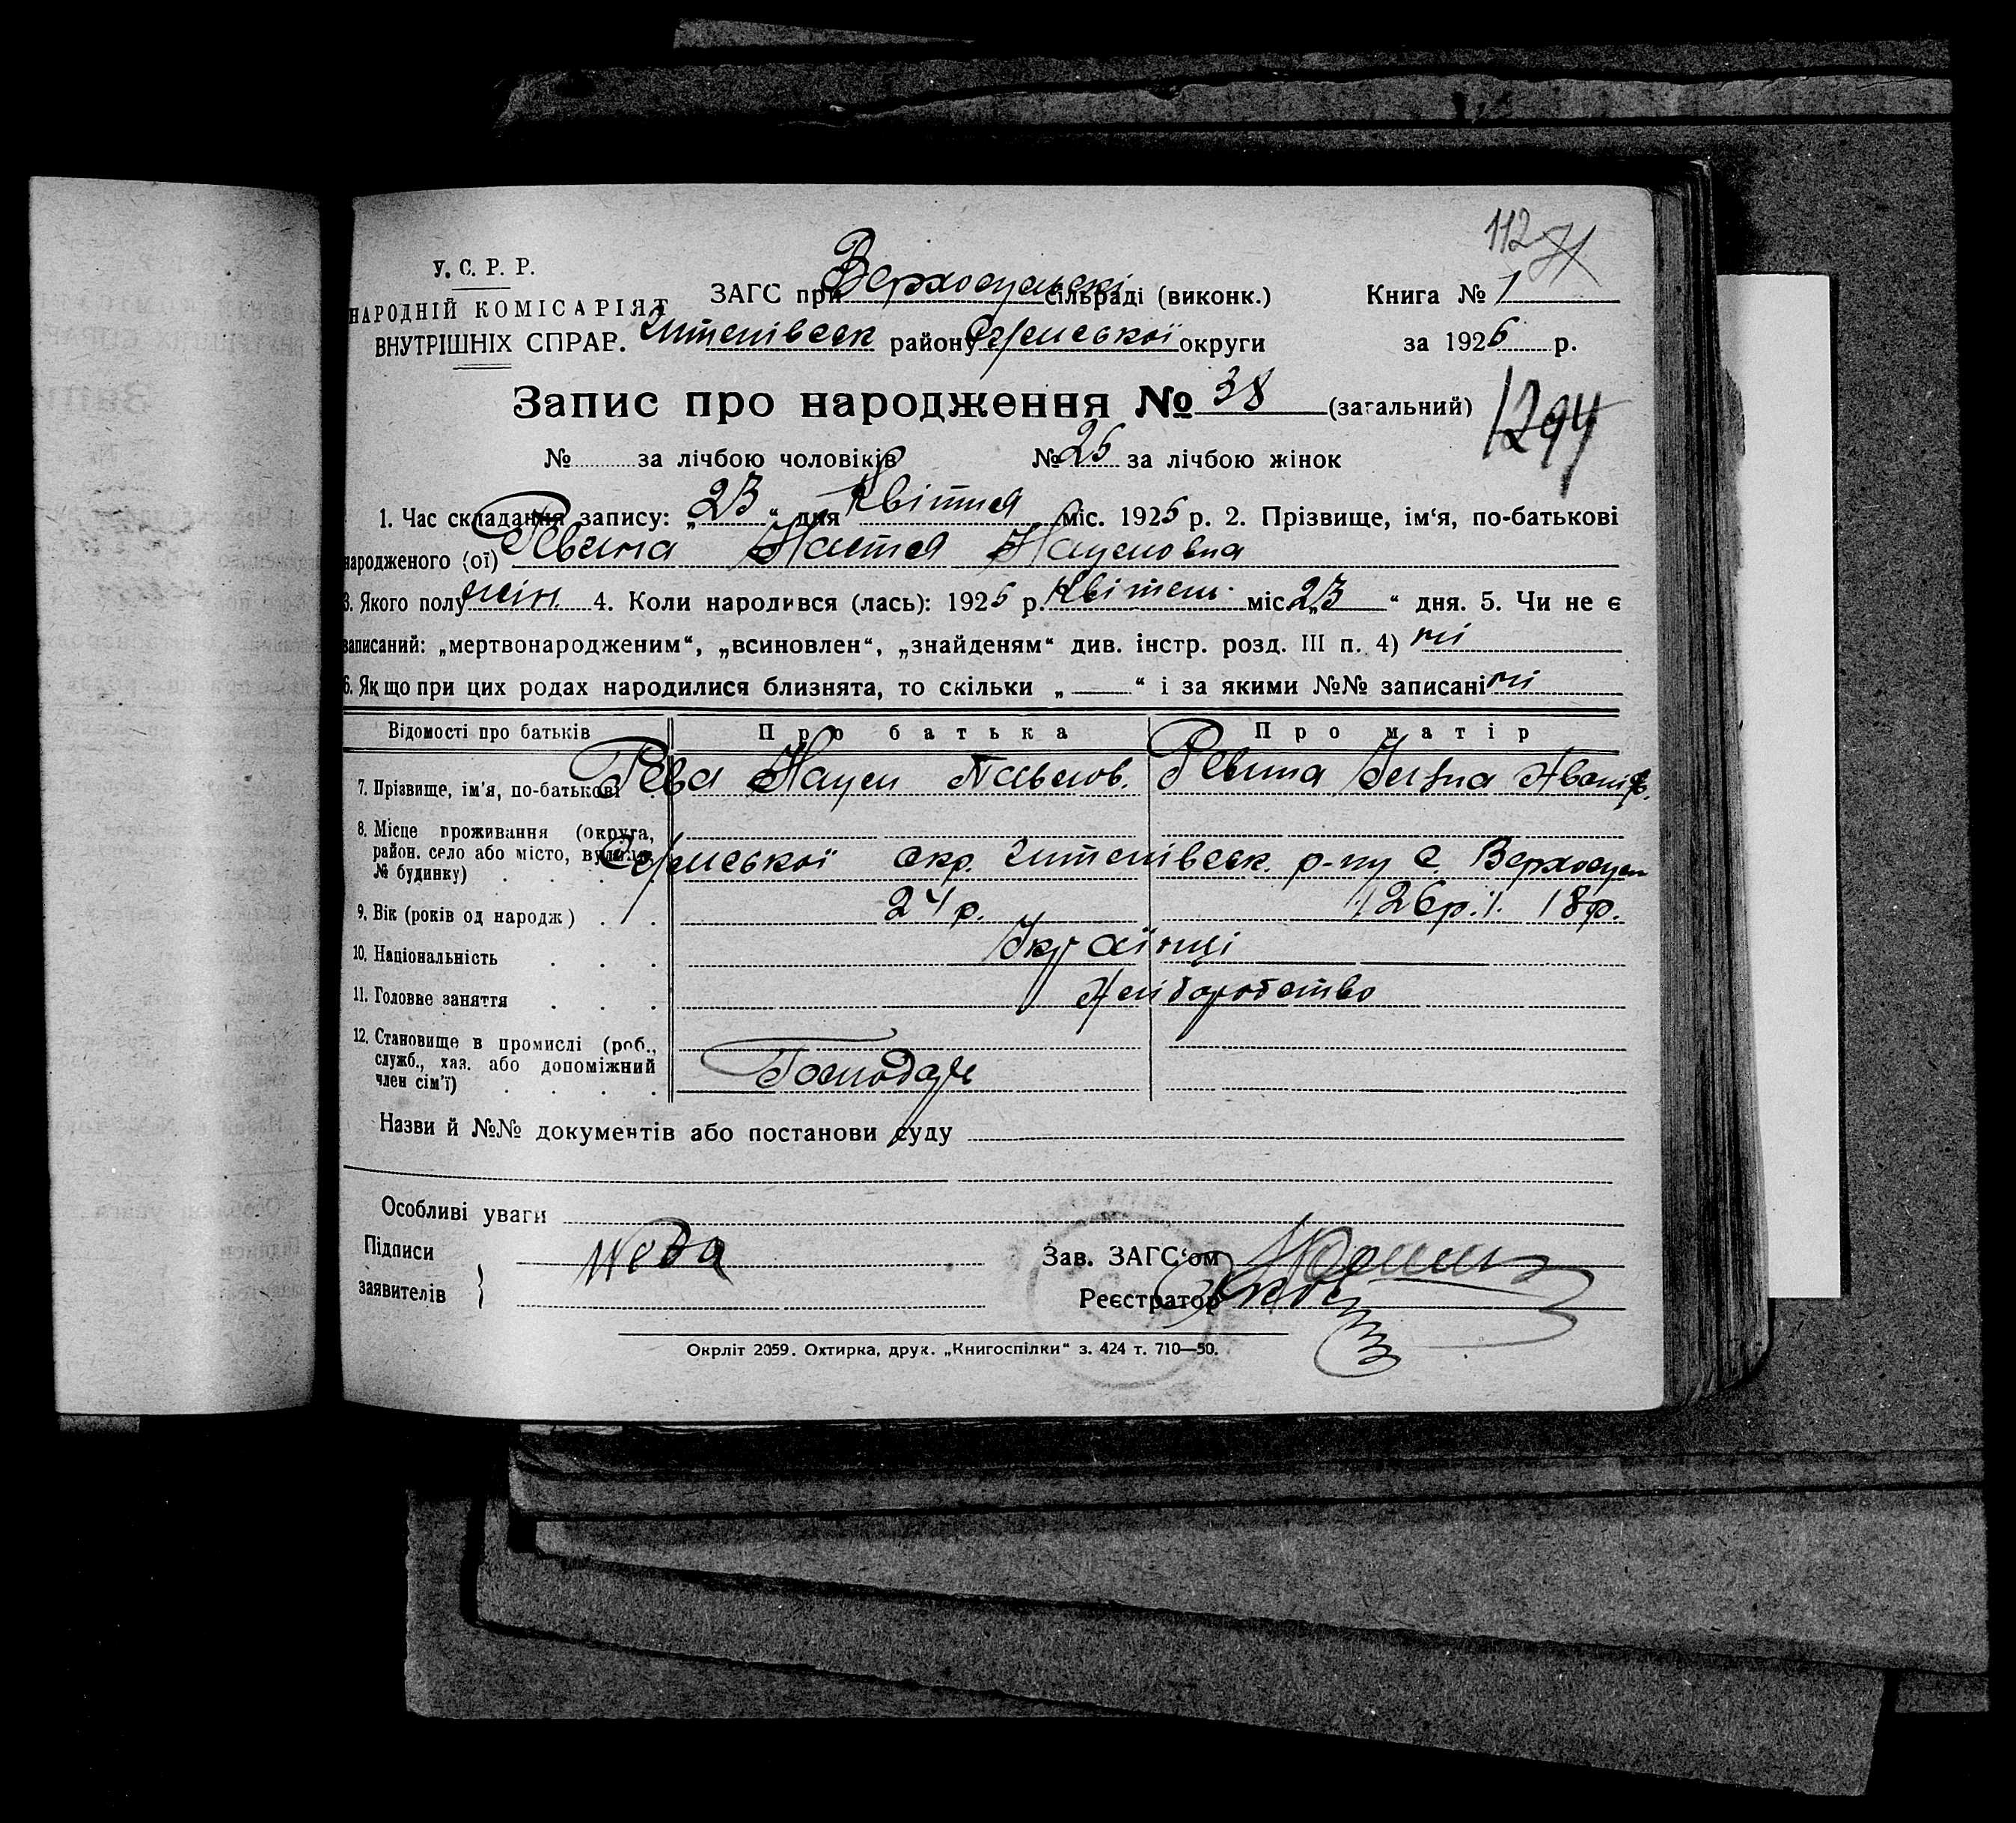 112
У. С. Р. Р.
НАРОДНІЙ КОМІСАРІЯТ
ВНУТРІШНІХ СПРАВ.
ЗАГС при Верхосульскі сільраді (виконк.)
Штепівськ району Сумської округи
Книга № 1
за 1926 р.
Запис про народження № 38 (загальний)
1294
№ за лічбою чоловіків № 25 за лічбою жінок
1. Час складання запису: „23“ дня Квітня міс. 1926 р. 2. Прізвище, ім‘я, по-батькові
народженого (ої) Ревина Настя Наумовна
3. Якого полу жін. 4. Коли народився (лась): 1926 р. Квітень міс. „23“ дня. 5. Чи не є
записаний: „мертвонародженим“, „всиновлен“, „знайденям“ див. інстр. розд. III п. 4) ні
6. Якщо при цих родах народилися близнята, то скільки „ “ і за якими №№ записані ні
Відомості про батьків Про батька Про матір
7. Прізвище, ім'я, по-батькові Рева Наум Павлов. Ревина
8. Місце проживання (округа,
район. село або місто, вулиця,
№ будинку)
Сумської окр. Штепівськ. р-ну с. Верхосул
9. Вік (років од народж) 24 р. 18 р.
10. Національність Українці
11. Головне заняття Хліборобство
12. Становище в промислі (роб.,
служб., хаз. або допоміжний
член сім'ї)
Господарь
Назви й №№ документів або постанови суду
Особливі уваги
Підписи
заявителів
Зав. ЗАГС‘ом
Реєстратор
Окрліт 2059. Охтирка, друк. „Книгоспілки“ з. 424 т. 710—50.